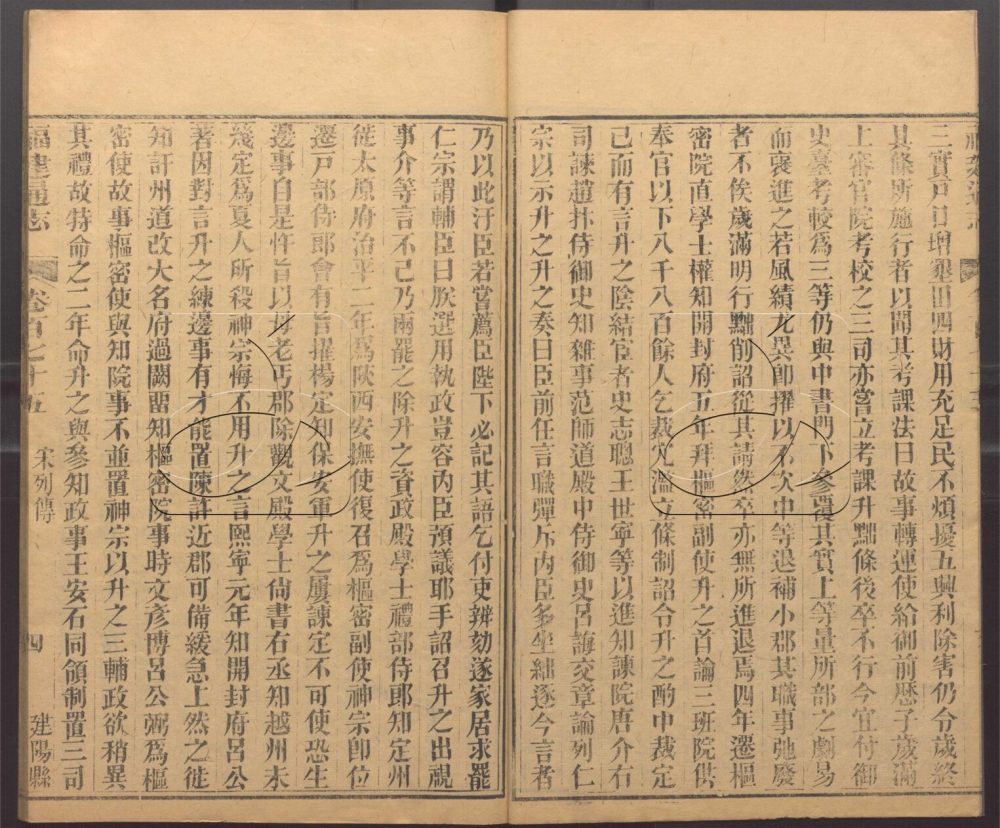 三實戶口增墾田四財用充足民不煩擾五興利除害仍令歲終
具條所施行者以聞其考課法曰故事轉運使給御前歷子歲滿
上審官院考校之三司亦嘗立考課升黜條後卒不行今宜付御
史臺考較爲三等仍與中書門下參覆其實上等量所部之劇易
而襃進之若風績尤異卽擢以不次中等退補小郡其職事弛廢
者不俟歲滿明行黜削詔從其請然卒亦無所進退焉四年遷樞
密院直學士權知開封府五年拜樞密副使升之首論三班院供
奉官以下八千八百餘人乞裁冗濫立條制詔令升之酌中裁定
已而有言升之陰結宦者史志聰王世寧等以進知諫院唐介右
司諫趙抃侍御史知雜事范師道殿中侍御史呂誨交章論列仁
宗以示升之升之奏曰臣前任言職彈斥內臣多坐絀逐今言者
乃以此汙臣若嘗薦臣陛下必記其語乞付吏辨劾遂家居求罷
仁宗謂輔臣曰朕選用執政豈容內臣預議耶手詔召升之出視
事介等言不已乃兩罷之除升之資政殿學士禮部侍郎知定州
徙太原府治平二年爲陝西安撫使復召爲樞密副使神宗卽位
遷戶部侍郎會有旨擢楊定知保安軍升之屢諫定不可使恐生
邊事自是忤旨以母老丐郡除觀文殿學士尙書右丞知越州未
幾定爲夏人所殺神宗悔不用升之言熙寧元年知開封府呂公
著因對言升之練邊事有才能置陳許近郡可備緩急上然之徙
知許州道改大名府過闕留知樞密院事時文彥博呂公弼爲樞
密使故事樞密使與知院事不並置神宗以升之三輔政欲稍異
其禮故特命之二年命升之與參知政事王安石同領制置三司
福建通志 卷百七十五 宋列傳 四 建陽縣